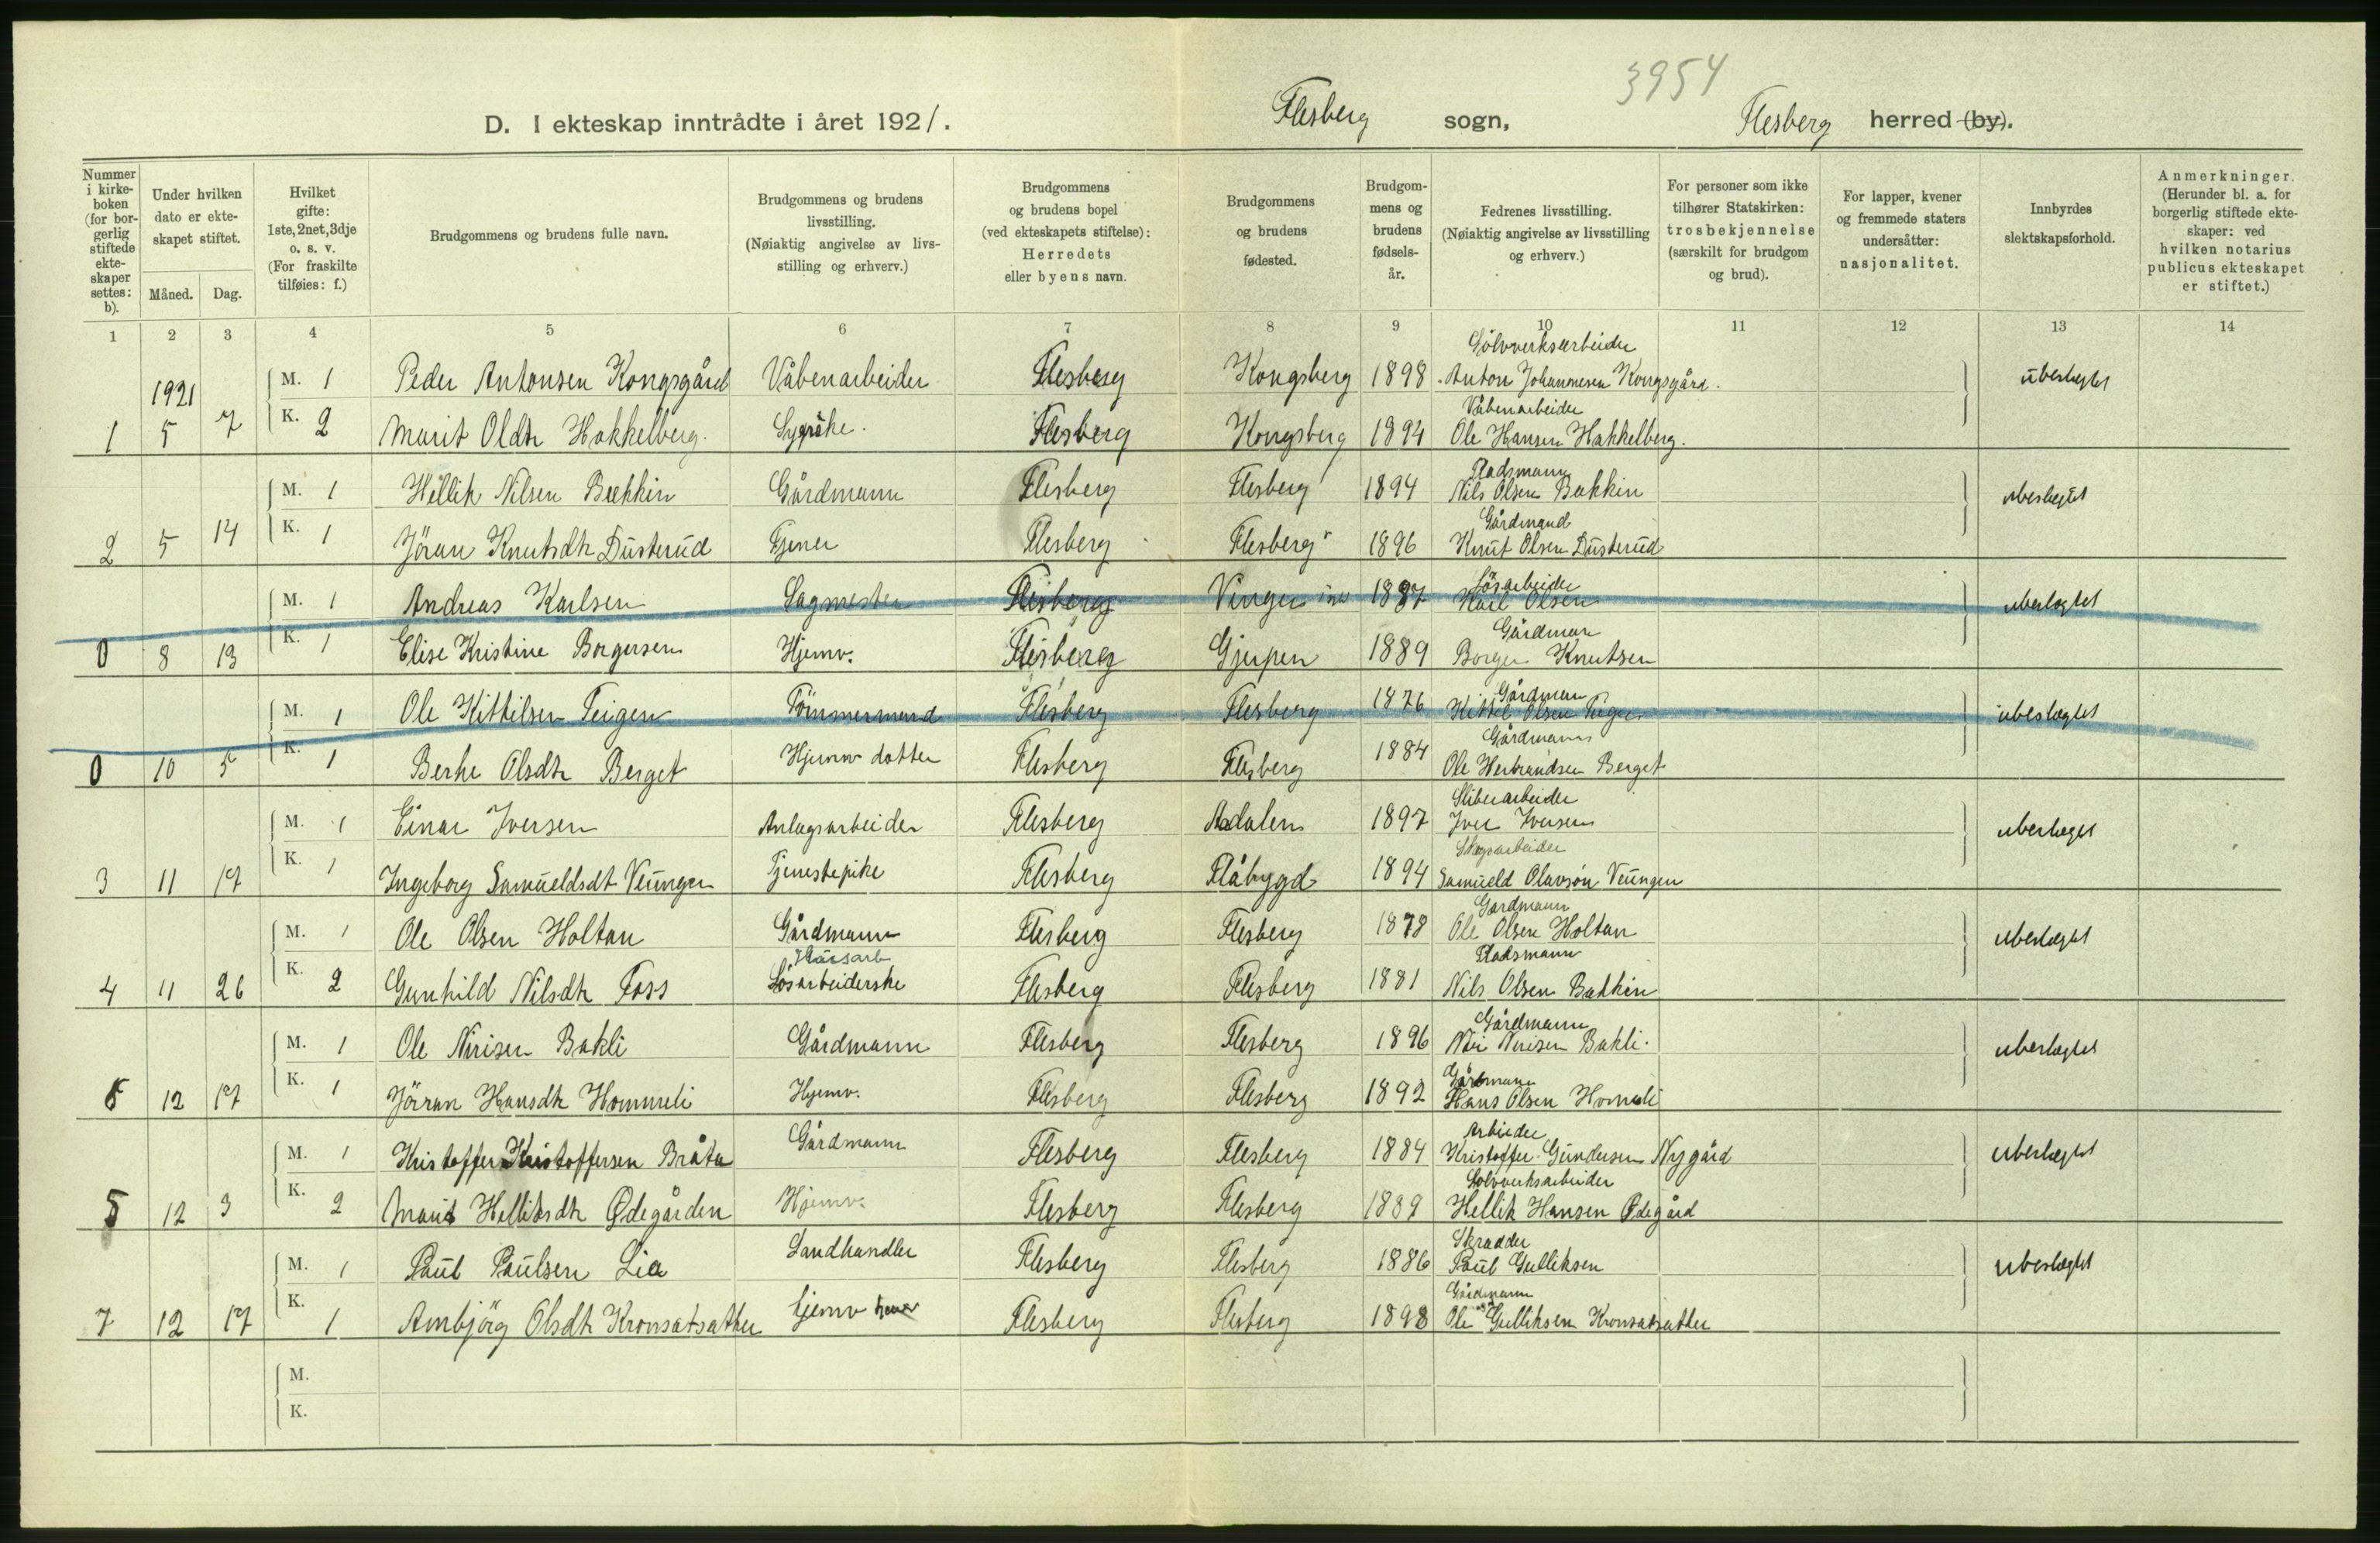 3954
D. I ekteskap inntrådte i året 1921. Flesberg sogn, Flesberg herred (by).
Nummer i kirke-boken (for bor-gerlig stiftede ekte-skaper settes: b).
Under hvilken dato er ekte-skapet stiftet.
Måned. Dag.
Hvilket gifte: 1ste, 2net, 3dje o. s. v. (For fraskilte tilføies: f.)
Brudgommens og brudens fulle navn.
Brudgommens og brudens livsstilling. (Nøiaktig angivelse av livs-stilling og erhverv.)
Brudgommens og brudens bopel (ved ekteskapets stiftelse): Herredets eller byens navn.
Brudgommens og brudens fødested.
Brudgom-mens og brudens fødsels-år.
Fedrenes livsstilling. (Nøiaktig angivelse av livsstilling og erhverv.)
For personer som ikke tilhører Statskirken: trosbekjennelse (særskilt for brudgom og brud).
For lapper, kvener og fremmede staters undersåtter: nasjonalitet.
Innbyrdes slektskapsforhold.
Anmerkninger. (Herunder bl. a. for borgerlig stiftede ekte-skaper: ved hvilken notarius publicus ekteskapet er stiftet.)
1 2 3 4 5 6 7 8 9 10 11 12 13 14
Sölvverksarbeider
1921 M. 1 Peder Antonsen Kongsgård Våbenarbeider Flesberg Kongsberg 1898 Anton Johannesen Kongsgård. ubeslegtet
Våbenarbeider
1 5 7 K. 2 Marit Oldtr Hakkelberg. Syerske. Flesberg Kongsberg 1894 Ole Hansen Hakkelberg.
Pladsmann
M. 1 Hellik Nilsen Bækkin Gårdmann Flesberg Flesberg 1894 Nils Olsen Bakkin ubeslegtet
Gårdmand
2 5 14 K. 1 Jöran Knutsdtr Dusterud Tjener Flesberg Flesberg 1896 Knut Olsen Dusterud
Lösarbeider
M. 1 Andreas Karlsen Sagmester Flesberg Vinger 1887 Karl Olsen ubeslegtet
Gårdman
0 8 13 K. 1 Elise Kristine Borgersen Hjemv. Flesberg Gjerpen 1889 Borger Knutsen
Gårdman
M. 1 Ole Kittilsen Teigen Tömmermand Flesberg Flesberg 1876 Kittel Olsen Teigen ubeslægtet
Gårdmann
0 10 5 K. 1 Berhe Olsdtr Berget Hjemv dotter Flesberg Flesberg 1884 Ole Herbrandsen Berget
Sliberarbeider
M. 1 Einar Iversen Anlægsarbeider Flesberg Aadalen 1897 Iver Iversen ubeslægtet
Skogsarbeider
3 11 17 K. 1 Ingeborg Samueldsdt Veungen Tjenestepike Flesberg Flåbygd 1894 Samueld Olavson Veungen
Gardmann
M. 1 Ole Olsen Holtan Gårdmann Flesberg Flesberg 1878 Ole Olsen Holtan ubeslægtet
Husarb Pladsmann
4 11 26 K. 2 Gunhild Nilsdtr Foss Lösarbeiderske Flesberg Flesberg 1881 Nils Olsen Bakkin
Gårdmann
M. 1 Ole Nirisen Bakli Gårdmann Flesberg Flesberg 1896 Niri Nirisen Bakli. ubeslægtet
Gårdmann
6 12 17 K. 1 Jöran Hansdtr Hommeli Hjemv. Flesberg Flesberg 1892 Hans Olsen Homeli
Arbieder
M. 1 Kristoffer Kristoffersen Bråta Gårdmann Flesberg Flesberg 1884 Kristoffer Gundersen Nygård ubeslægtet
Sölvverksarbeider
5 12 3 K. 2 Marit Helliksdtr Ødegården Hjemv. Flesberg Flesberg 1889 Hellik Hansen Ødegård
Skrædder
M. 1 Paul Paulsen Lia Landhandler Flesberg Flesberg 1886 Paul Gulliksen ubeslægtet
Gårdmann
7 12 17 K. 1 Ambjörg Olsdtr Kronsatsather hjemv Flesberg Flesberg 1898 Ole Gulliksen Kronsatsather
M.
K.